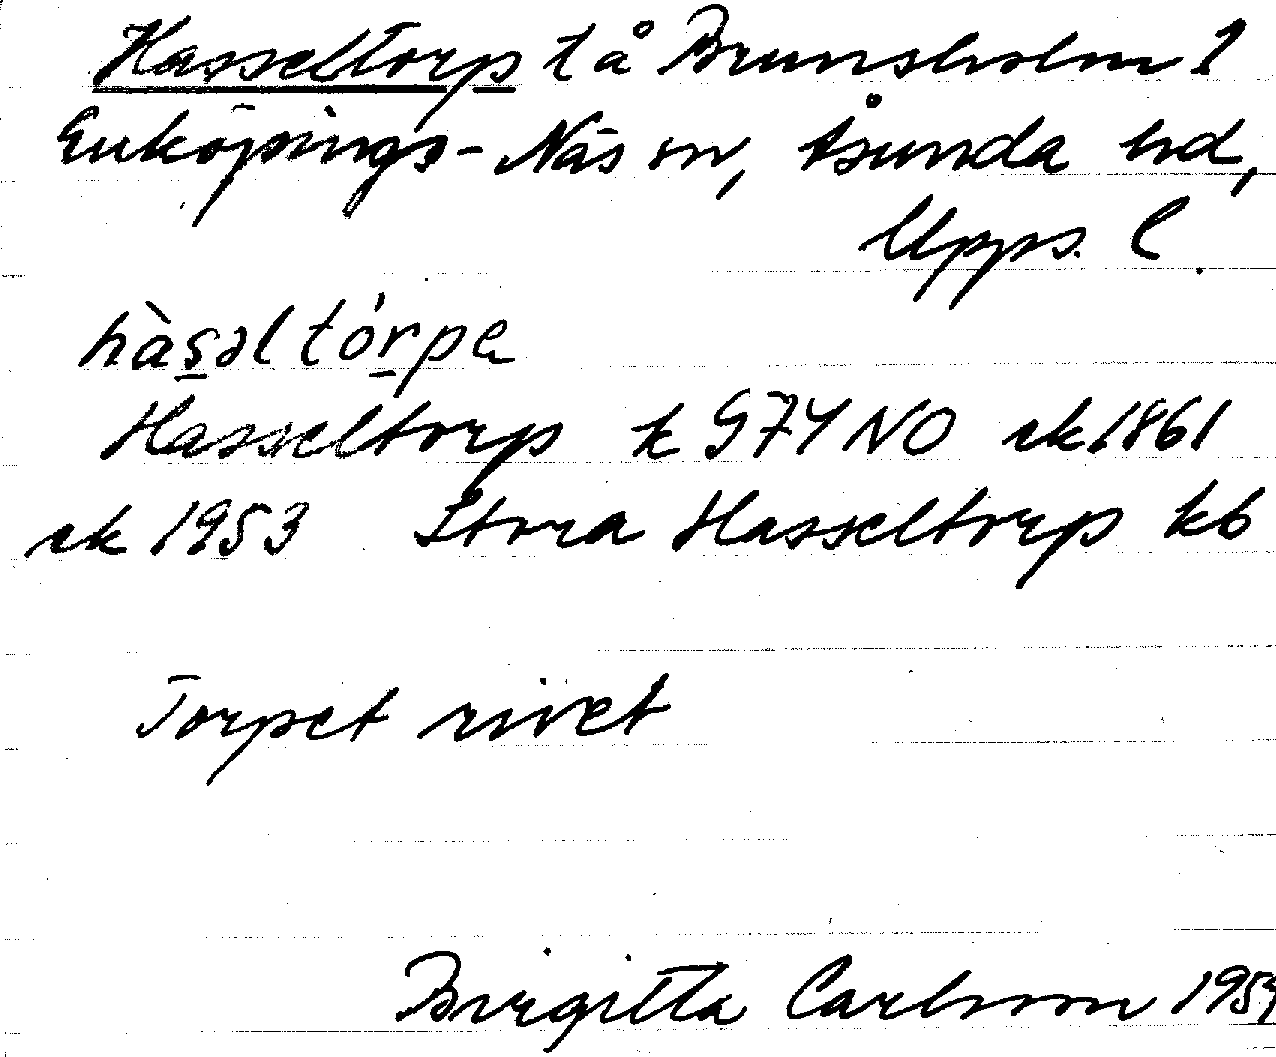 Hasseltorp t å Brunsholm 1
Enköpings-Näs sn, Åsunda hd,
Upps. l.
hàs̲əltó̲rpa
Hasseltorp k G74NO ek 1861
ek 1953 Stora Hasseltorp kb
Torpet rivet
Birgitta Carlsson 1954